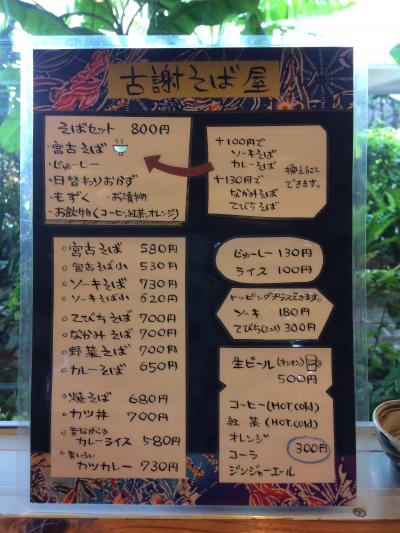 古謝そば屋
そばセット 800円
・宮古そば
・じゅーしー
・日替わりおかず
・もずく ・お漬物
・お飲物(コーヒー,紅茶,オレンジ)
+100円で
ソーキそば
カレーそば
+130円で
なかみそば
てびちそば
換えること
できます。
○宮古そば 580円
○宮古そば小 530円
○ソーキそば 730円
○ソーキそば小 520円
○てびちそば 700円
○なかみそば 700円
○野菜そば 700円
○カレーそば 650円
○焼そば 680円
○カツ丼 700円
○昔ながらの
カレーライス 580円
○昔いろい
カツカレー 730円
じゅーしー 130円
ライス 100円
トッピングプラスできます。
ソーキ 180円
てびち(2コ) 300円
生ビール(オリオン)
500円
コーヒー(HOT,cold)
紅茶(HOT,cold)
オレンジ
コーラ
ジンジャーエール
300円